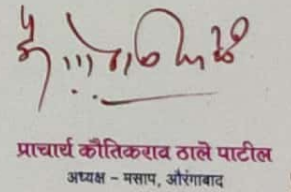 प्राचार्य कौतिकराव ठाले पाटील
अध्यक्ष - मसाप, औरंगाबाद